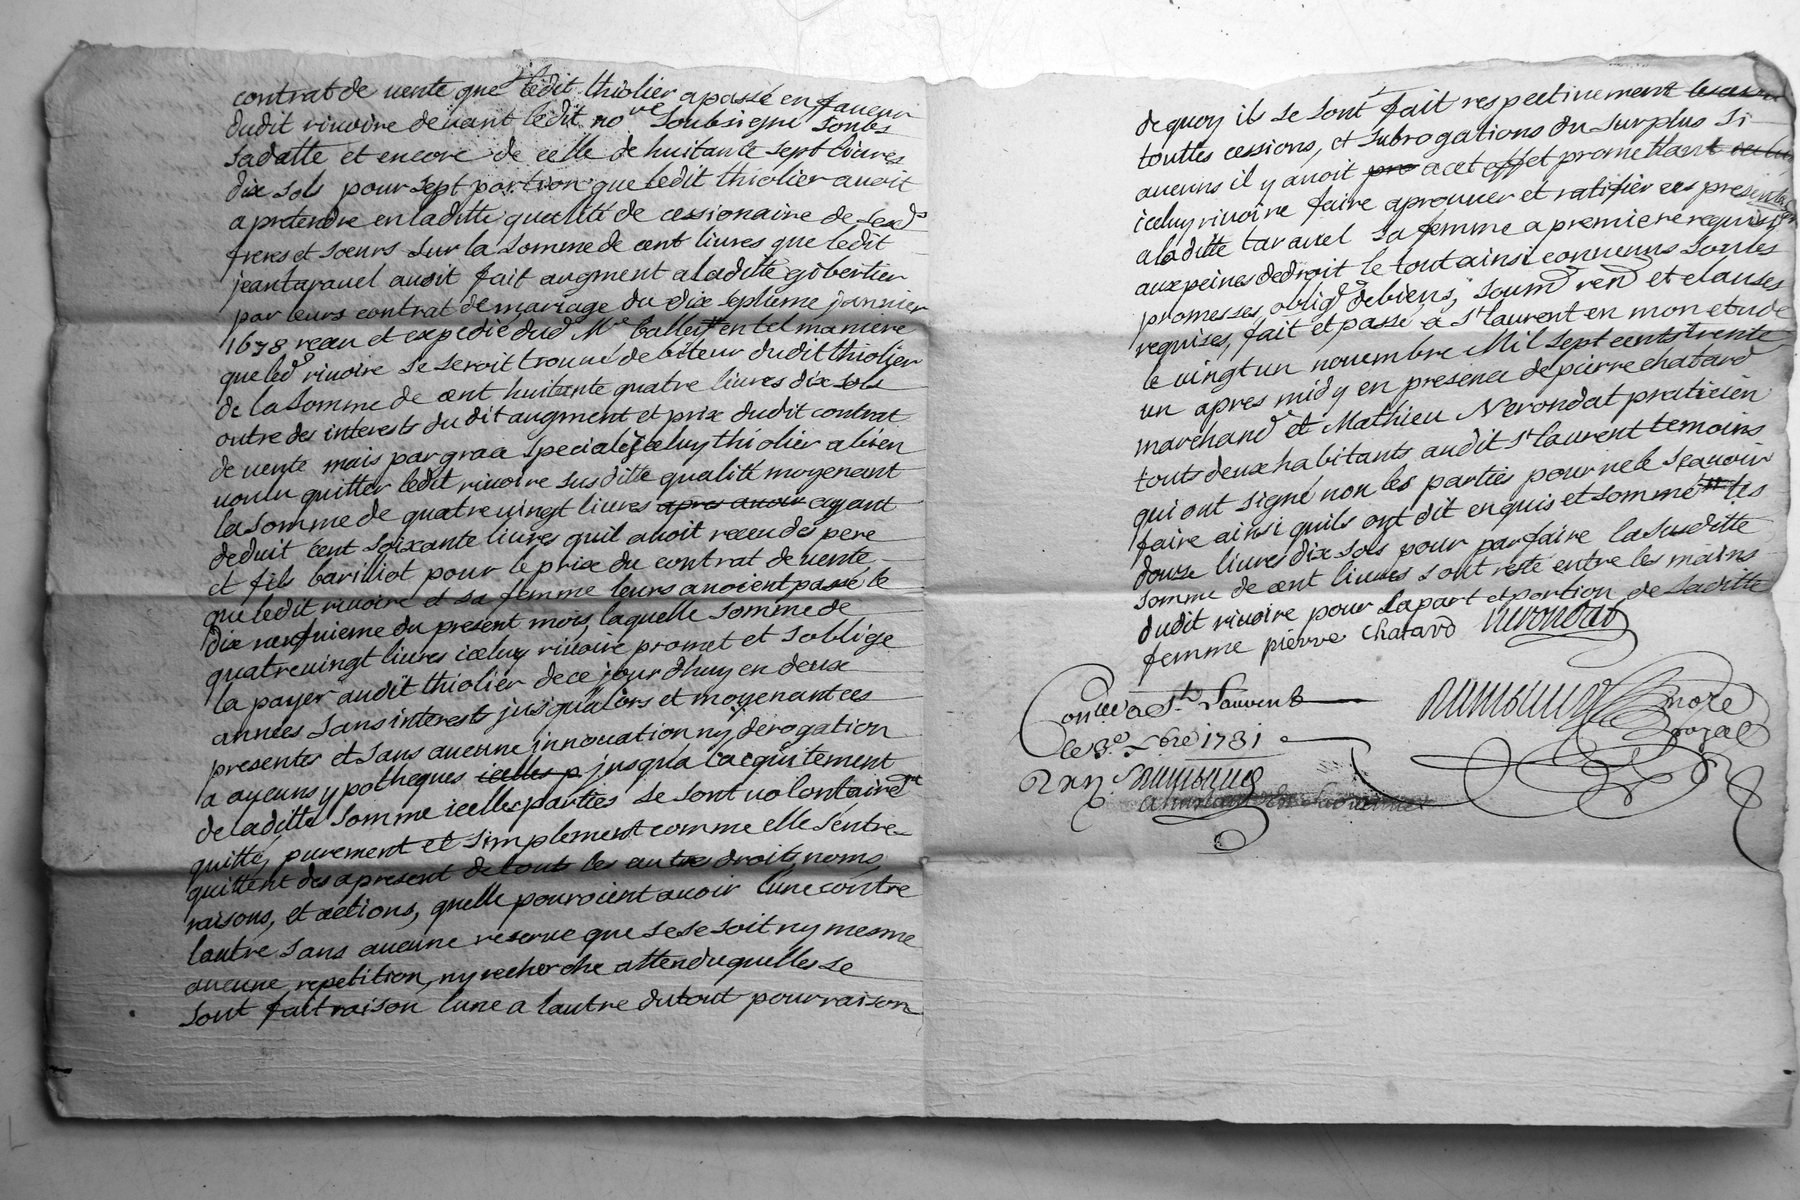 contrat de vente que ledit thiolier a passé en faveur
dudit rivoire devant ledit no.re soubsigné soubs
sa datte et encore de celle de huitante sept livres
dix sols pour sept portion que ledit thiolier avoit
a pretendre en laditte qualité de cessionaire de sesd.s
freres et sœurs sur la somme de cent livres que ledit
jean taravel avoit fait augment a laditte gibertier
par leurs contrat de mariage du dix septieme janvier
1678 receu et expedié dud. M.e en tel maniere
que led. rivoire se seroit trouvé debiteur dudit thiolier
de la somme de cent huitante quatre livres dix sols
outre des interests dudit augment et prix dudit contrat
de vente mais par grace specialle iceluy thiolier a bien
voulu quitter ledit rivoire susditte qualité moyenant
la somme de quatre vingt livres apres avoir ayant
deduit cent soixante livres quil avoit receu des pere
et fils barilliot pour le prix du contrat de vente
que ledit rivoire et sa femme leurs avoient passé le
dix neufvieme du present mois, laquelle somme de
quatre vingt livres iceluy rivoire promet et soblige
la payer audit thiolier de ce jourdhuy en deux
années sans interests jusqualors et moyenant ces
presentes et sans aucune innovation ny derogation
a aucuns ypotheques icelles p jusqua lacquitement
de laditte somme icelles parties se sont volontairem.t
quitté, purement et simplement comme elle sentre-
quittent des apresent de tout les autres droits noms,
raisons, et actions, quelle pouroient avoir lune contre
lautre sans aucune reserve que se se soit ny mesme
aucune repetition, ny recherche attendu quelles se
sont fait raison lune a lautre du tout pour raison
de quoy ils se sont fait respectivement
touttes cessions, et subrogations du surplus si
aucuns il y avoit pro a cet effet promettant
iceluy rivoire faire aprouver et ratifier ces presentes
a laditte taravel sa femme a premiere requis.on
aux peines de droit le tout ainsi convenus soubs
promesses, oblig.d de biens, soum.d ren.d et clauses
requises, fait et passé a S.t laurent en mon etude
le vingt un novembre Mil sept cents trente
un apres midy en presence de pierre chatard
marchand et Mathieu Nerondat praticien
touts deux habitants audit S.t laurent temoins
qui ont signé non les parties pour ne le sçavoir
faire ainsi quils ont dit enquis et sommé les
douze livres dix sols pour parfaire la susditte
somme de cent livres sont resté entre les mains
dudit rivoire pour la part et portion de saditte
femme pierre chatard Nerondat
Con.llé a S.t Laurent
le 3.e xbre 1731
no.re
royal